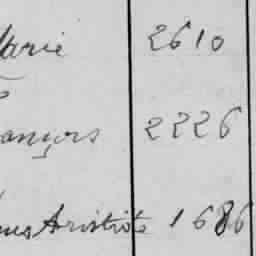 Marie 2610
ançois 2226
us Aristote 1686